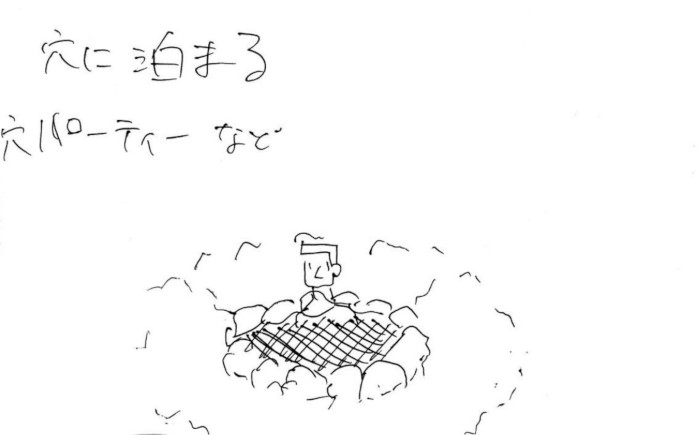 穴に泊まる
穴パーティー など